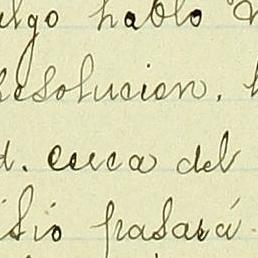 algo hablo
Resolucion.
d. cerca del
isio pasará